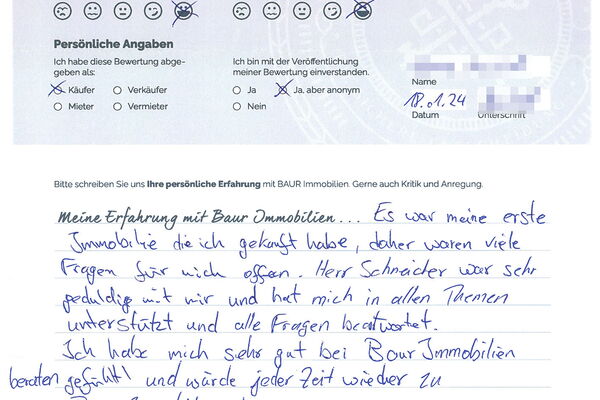 Persönliche Angaben
Ich habe diese Bewertung abge-
geben als:
Käufer
Verkäufer
Mieter
Vermieter
Ich bin mit der Veröffentlichung
meiner Bewertung einverstanden.
Ja
Ja, aber anonym
Nein
Name
18.01.24
Datum
Unterschrift
Bitte schreiben Sie uns Ihre persönliche Erfahrung mit BAUR Immobilien. Gerne auch Kritik und Anregung.
Meine Erfahrung mit Baur Immobilien... Es war meine erste
Immobilie die ich gekauft habe, daher waren viele
Fragen für mich offen. Herr Schneider war sehr
geduldig mit mir und hat mich in allen Themen
unterstützt und alle Fragen beantwortet.
Ich habe mich sehr gut bei Baur Immobilien
beraten gefühlt und würde jeder Zeit wieder zu